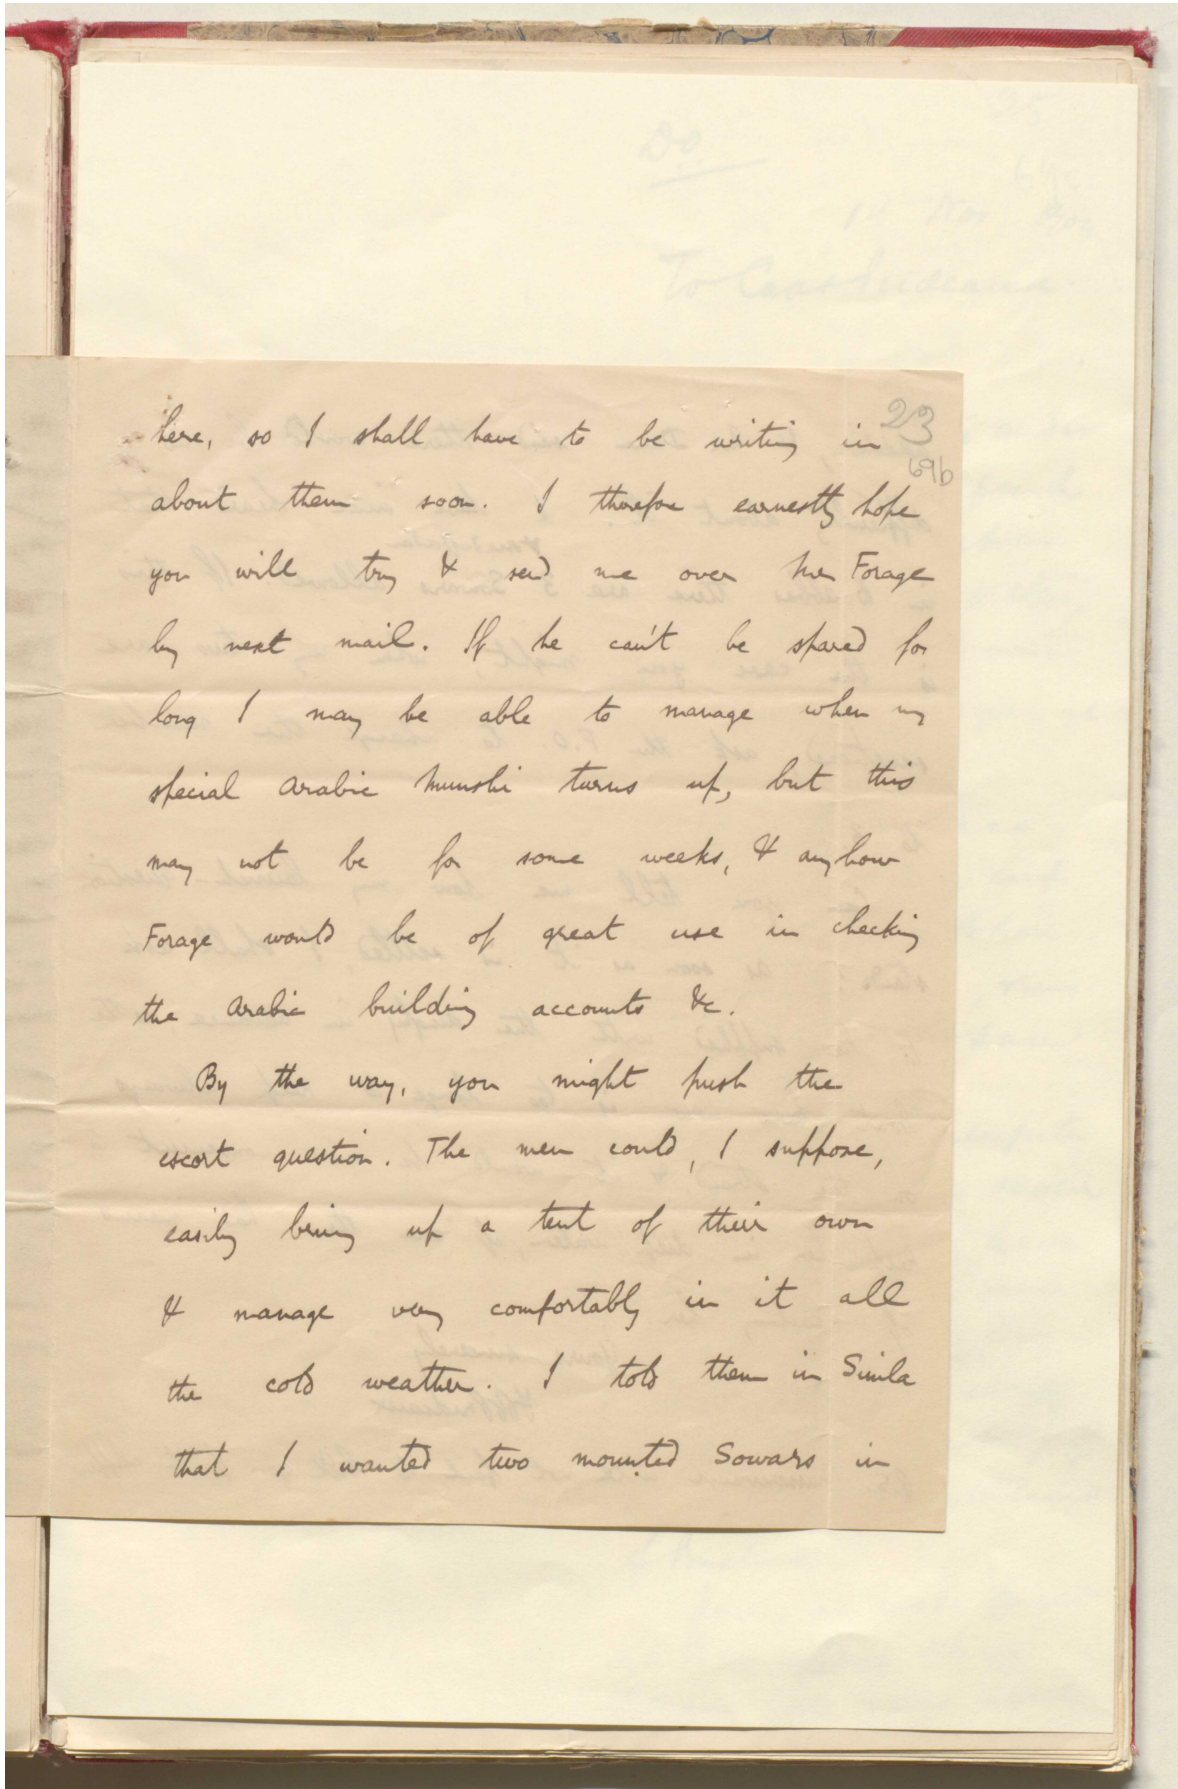 23
69b
here, so I shall have to be writing in
about them soon. I therefore earnestly hope
you will try & send me over Mr Forage
by next mail. If he can't be spared for
long I may be able to manage when my
special Arabic Munshi turns up, but this
may not be for some weeks, & anyhow
Forage would be of great use in checking
the Arabic building accounts &c.
By the way, you might push the
escort question. The men could, I suppose,
easily bring up a tent of their own
& manage very comfortably in it all
the cold weather. I told them in Simla
that I wanted two mounted Sowars in